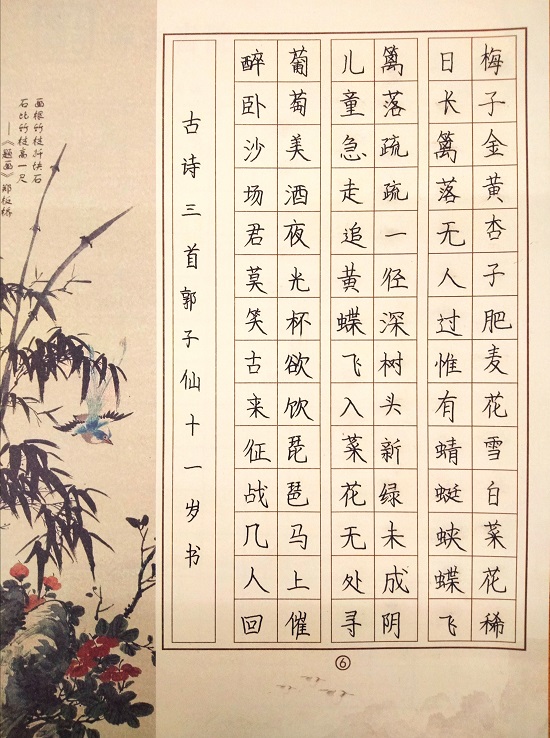 梅子金黄杏子肥麦花雪白菜花稀
日长篱落无人过惟有蜻蜓蛱蝶飞
篱落疏疏一径深树头新绿未成阴
儿童急走追黄蝶飞入菜花无处寻
葡萄美酒夜光杯欲饮琵琶马上催
醉卧沙场君莫笑古来征战几人回
古诗三首郭子仙十一岁书
画根竹枝扦块石
石比竹枝高一尺
——《题画》郑板桥
⑥